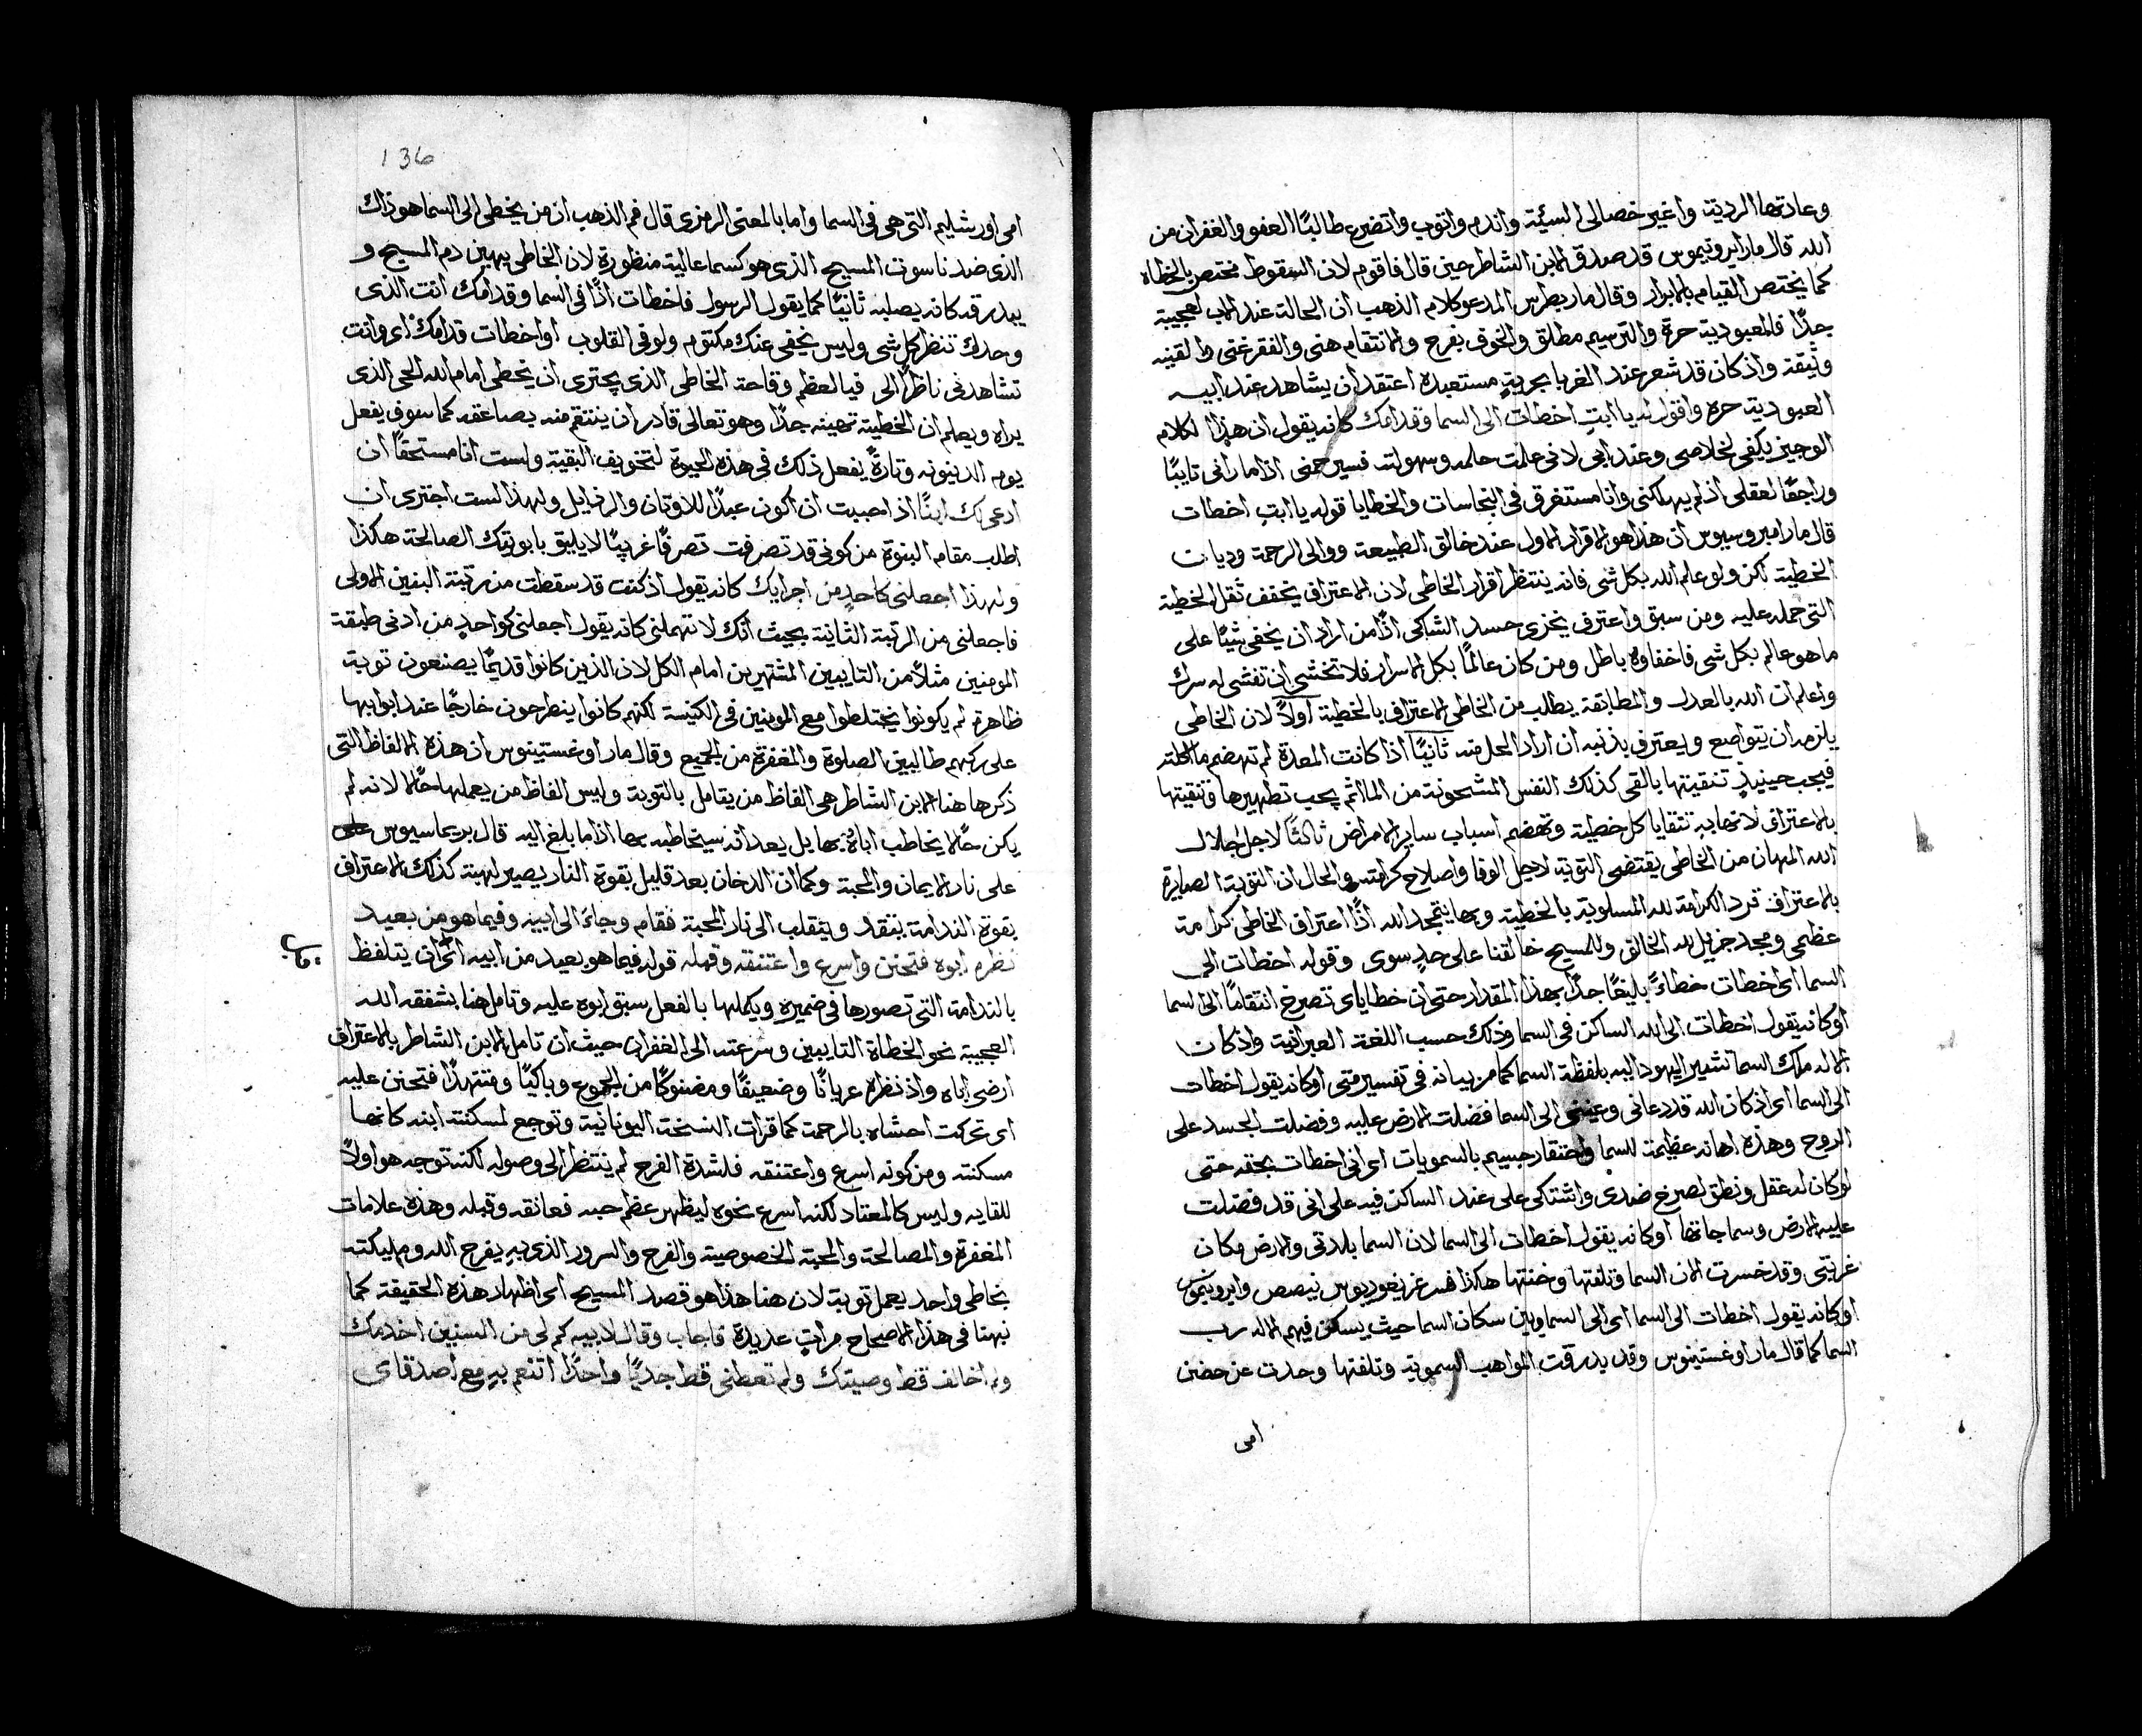 وعادتها الردية واغير خصالى السيئة واندم واتوب واتضرع طالبًا العفو والغفران من
الله قال مار ايرونيموس قد صدق الابن الشاطر حين قال فاقوم لان السقوط مختص بالخطاه
كما يختص القيام بالابرار وقال مار بطرس المدعو كلام الذهب ان الحالة عند الاب لعجيبة
جدًا فالعبودية حرة والترسيم مطلق والخوف بفرح والانتقام هنى والفقر غنى والقينه
وثيقة واذ كان قد شعر عند الغربا بحرية مستعبدة اعتقد ان يشاهد عند ابيه
العبودية حره واقول له يا ابتِ اخطات الى السما وقدامك كانه يقول ان هذا الكلام
الوجيز يكفى لخلاصى وعند ابى لانى علمت حلمه وسهولته فسيرحمنى اذا ما رانى تايبًا
وراجعًا لعقلى اذ لم يهلكنى وانا مستغرق فى النجاسات والخطايا قوله يا ابتِ اخطات
قال مار امبروسيوس ان هذا هو الاقرار الاول عند خالق الطبيعة ووالى الرحمة وديان
الخطية لكن ولو علم الله بكل شى فانه ينتظر اقرار الخاطى لان الاعتراف يخفف ثقل الخطية
التى حمله عليه ومن سبق واعترف يخزى حسد الشاكى اذًا من اراد ان يخفى شيًا على
ما هو عالم بكل شى فاخفاوه باطل ومن كان عالمًا بكل الاسرار فلا تخشى ان تفشى له سرك
واعلم ان الله بالعدل والمطابقة يطلب من الخاطى الاعتراف بالخطية اولاً لان الخاطى
يلزمه ان يتواضع ويعترف بذنبه ان اراد الحل منه ثانيًا اذا كانت المعدة لم تهضم ما اكلته
فيجب حينيذٍ تنقيتها بالقى كذلك النفس المشحونة من الماثم يجب تطهيرها وتنقيتها
بالاعتراف لانها به تتقايا كل خطية وتهضم اسباب ساير الامراض ثالثًا لاجل اجلال
الله المهان من الخاطى يقتضى التوبة لاجل الوفا واصلاح كرامته والحال ان التوبة الصايرة
بالاعتراف ترد الكرامة لله المسلوبة بالخطية وبها يتمجد الله اذًا اعتراف الخاطى كرامة
عظمى ومجد جزيل لله الخالق وللمسيح خالقنا على حدٍ سوى وقوله اخطات الى
السما اى اخطات خطاءً بليغًا جدًا بهذا المقدار حتى ان خطاياى تصرخ انتقامًا الى السما
او كانه يقول اخطات الى الله الساكن فى السما وذلك حسب اللغة العبرانية واذ كان
الاله ملك السما تشير اليهود اليه بلفظة السما كما مر بيانه فى تفسير متى او كانه يقول اخطات
الى السما اى اذ كان الله قد دعانى وعيننى الى السما فضلت الارض عليه وفضلت الجسد على
الروح وهذه اهانه عظيمة للسما واحتقار جسيم بالسمويات اى انى اخطات بحقه حتى
لو كان له عقل ونطق لصرخ ضدى واشتكى على عند الساكن فيه على انى قد فضلت
عليه الارض وسماجاتها او كانه يقول اخطات الى السما لان السما بلدتى والارض مكان
غربتى وقد خسرت الان السما وتلفتها وخنتها هكذا فسر غريغوريوس نيصص وايرونيموس
او كانه يقول اخطات الى السما اى الى السماويين سكان السما حيث يسكن فيهم الاله رب
السما كما قال مار اوغستينوس وقد بدرقت المواهب السموية وتلفتها وحدت عن حضن
امى
136
امى اورشليم التى هى فى السما واما بالمعنى الرمزى قال فم الذهب ان من يخطى الى السما هو ذاك
الذى ضد ناسوت المسيح الذى هو كسما عالية منظورة لان الخاطى يهين دم المسيح و
يبدرقه كانه يصلبه ثانيًا كما يقول الرسول فاخطات اذًا فى السما وقدامك انت الذى
وحدك تنظر كل شى وليس يخفى عنك مكتوم ولو فى القلوب او اخطات قدامك اى وانت
تشاهدنى ناظرًا الى فيا لعظم وقاحة الخاطى الذى يجترى ان يخطى امام الله الحى الذى
يراه ويعلم ان الخطية تهينه جدًا وهو تعالى قادر ان ينتقم منه بصاعقه كما سوف يفعل
يوم الدينونه وتارةً يفعل ذلك فى هذه الحيوة لتخويف البقية ولست انا مستحقًا ان
ادعى لك ابنًا اذ احببت ان اكون عبدًا للاوثان والرذايل ولهذا لست اجترى ان
اطلب مقام البنوة من كونى قد تصرفت تصرفًا غريبًا لا يليق بابوتك الصالحة هكذا
ولهذا اجعلنى كاحدٍ من اجرايك كانه يقول اذ كنت قد سقطت من رتبة البنين الاولى
فاجعلنى من الرتبة الثانية بحيث انك لا تهملنى كانه يقول اجعلنى كواحدٍ من ادنى طبقة
المومنين مثلاً من التايبين المشتهرين امام الكل لان الذين كانوا قديمًا يصنعون توبة
ظاهرة لم يكونوا يختلطوا مع المومنين فى الكنيسة لكنهم كانوا ينطرحون خارجًا عند ابوابها
على ركبهم طالبين الصلوة والمغفرة من الجميع وقال مار اوغستينوس ان هذه الالفاظ التى
ذكرها هنا الابن الشاطر هى الفاظ من يتامل بالتوبة وليس الفاظ من يعملها حالاً لانه لم
يكن حالاً يخاطب اباه بها بل يعد انه سيخاطبه بها اذا ما بلغ اليه قال بريماسيوس على
على نار الايمان والمحبة وكما ان الدخان بعد قليل بقوة النار يصير لهبة كذلك الاعتراف
بقوة الندامة يتقد وينقلب الى نار المحبة فقام وجاءَ الى ابيه وفيما هو من بعيد
نظره ابوه فتحنن واسرع واعتنقه وقبله قوله فيما هو بعيد من ابيه اى ان يتلفظ
بالندامة التى تصورها فى ضميره ويكملها بالفعل سبق ابوه عليه وتامل هنا بشفقه الله
العجيبة نحو الخطاة التايبين وسرعته الى الغفران حيث ان تامل الابن الشاطر بالاعتراف
ارضى اباه واذ نظره عريانًا وضعيفًا ومضنوكًا من الجوع وباكيًا ومتنهدًا فتحنن عليه
اى تحركت احشاه بالرحمة كما قرات النسخة اليونانية وتوجع لمسكنته ابنه كانها
مسكنته ومن كونه اسرع واعتنقه فلشدة الفرح لم ينتظر الى وصوله لكنه توجه هو اولاً
للقايه وليس كالمعتاد لكنه اسرع نحوه ليظهر عظم حبه فعانقه وقبله وهذه علامات
المغفرة والمصالحة والمحبة الخصوصية والفرح والسرور الذى به يفرح الله ومليكته
بخاطى واحد يعمل توبة لان هنا هذا هو قصد المسيح اى اظهار هذه الحقيقة كما
نبهنا فى هذا الاصحاح مراتٍ عديدة فاجاب وقال لابيه كم لى من السنين اخدمك
ولم اخالف قط وصيتك ولم تعطنى قط جديًا واحدًا اتنعم به مع اصدقاى